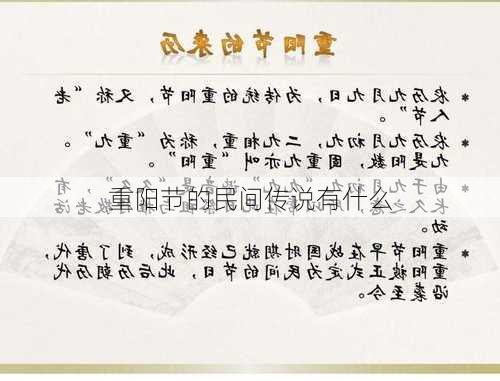 重阳节的来历
* 农历九月九日，为传统的重阳节，又称“老
人节”。
* 农历九月初九，二九相重，称为“重九”。
九是阳数，固重九亦叫“重阳”。
* 由于九月初九 有
重阳节的民间传说有什么
长久之 敬老活
动。
* 重阳节早在战国时期就已经形成，到了唐代，
重阳被正式定为民间的节日，此后历朝历代
沿袭至今。